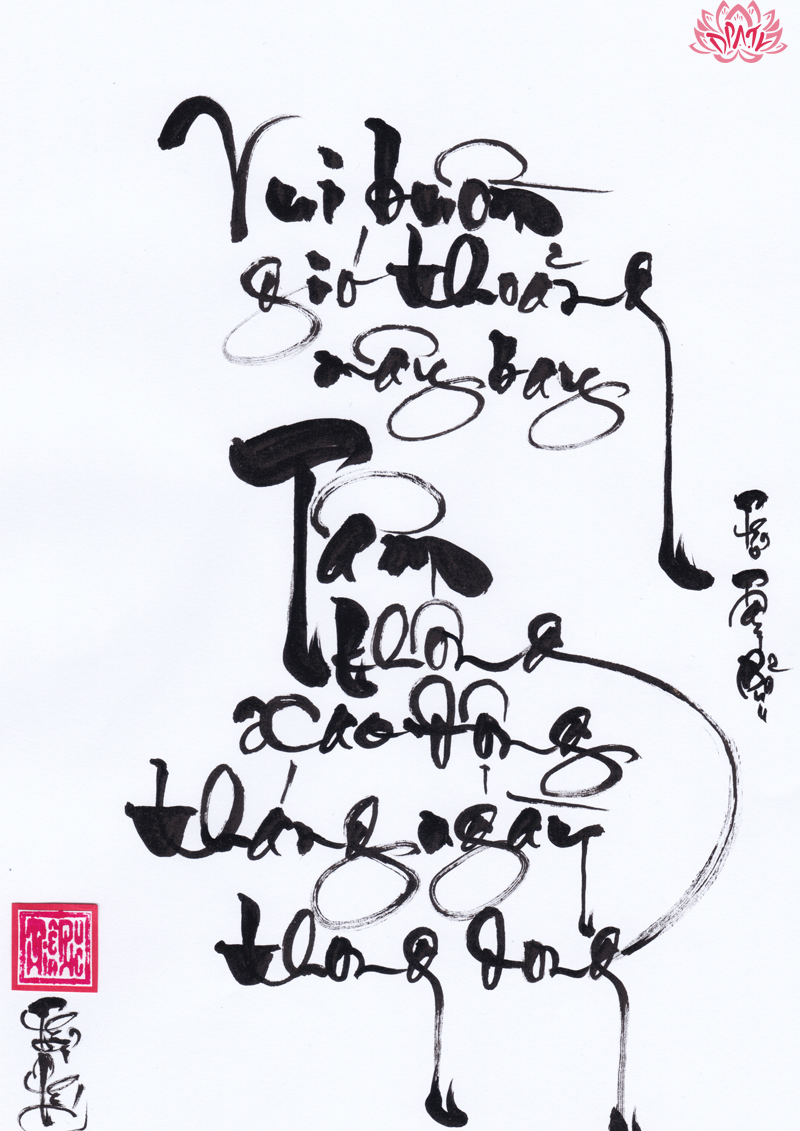 Vui buồn
gió thoảng
mây bay
Tâm
không
xao động
tháng ngày
thong dong